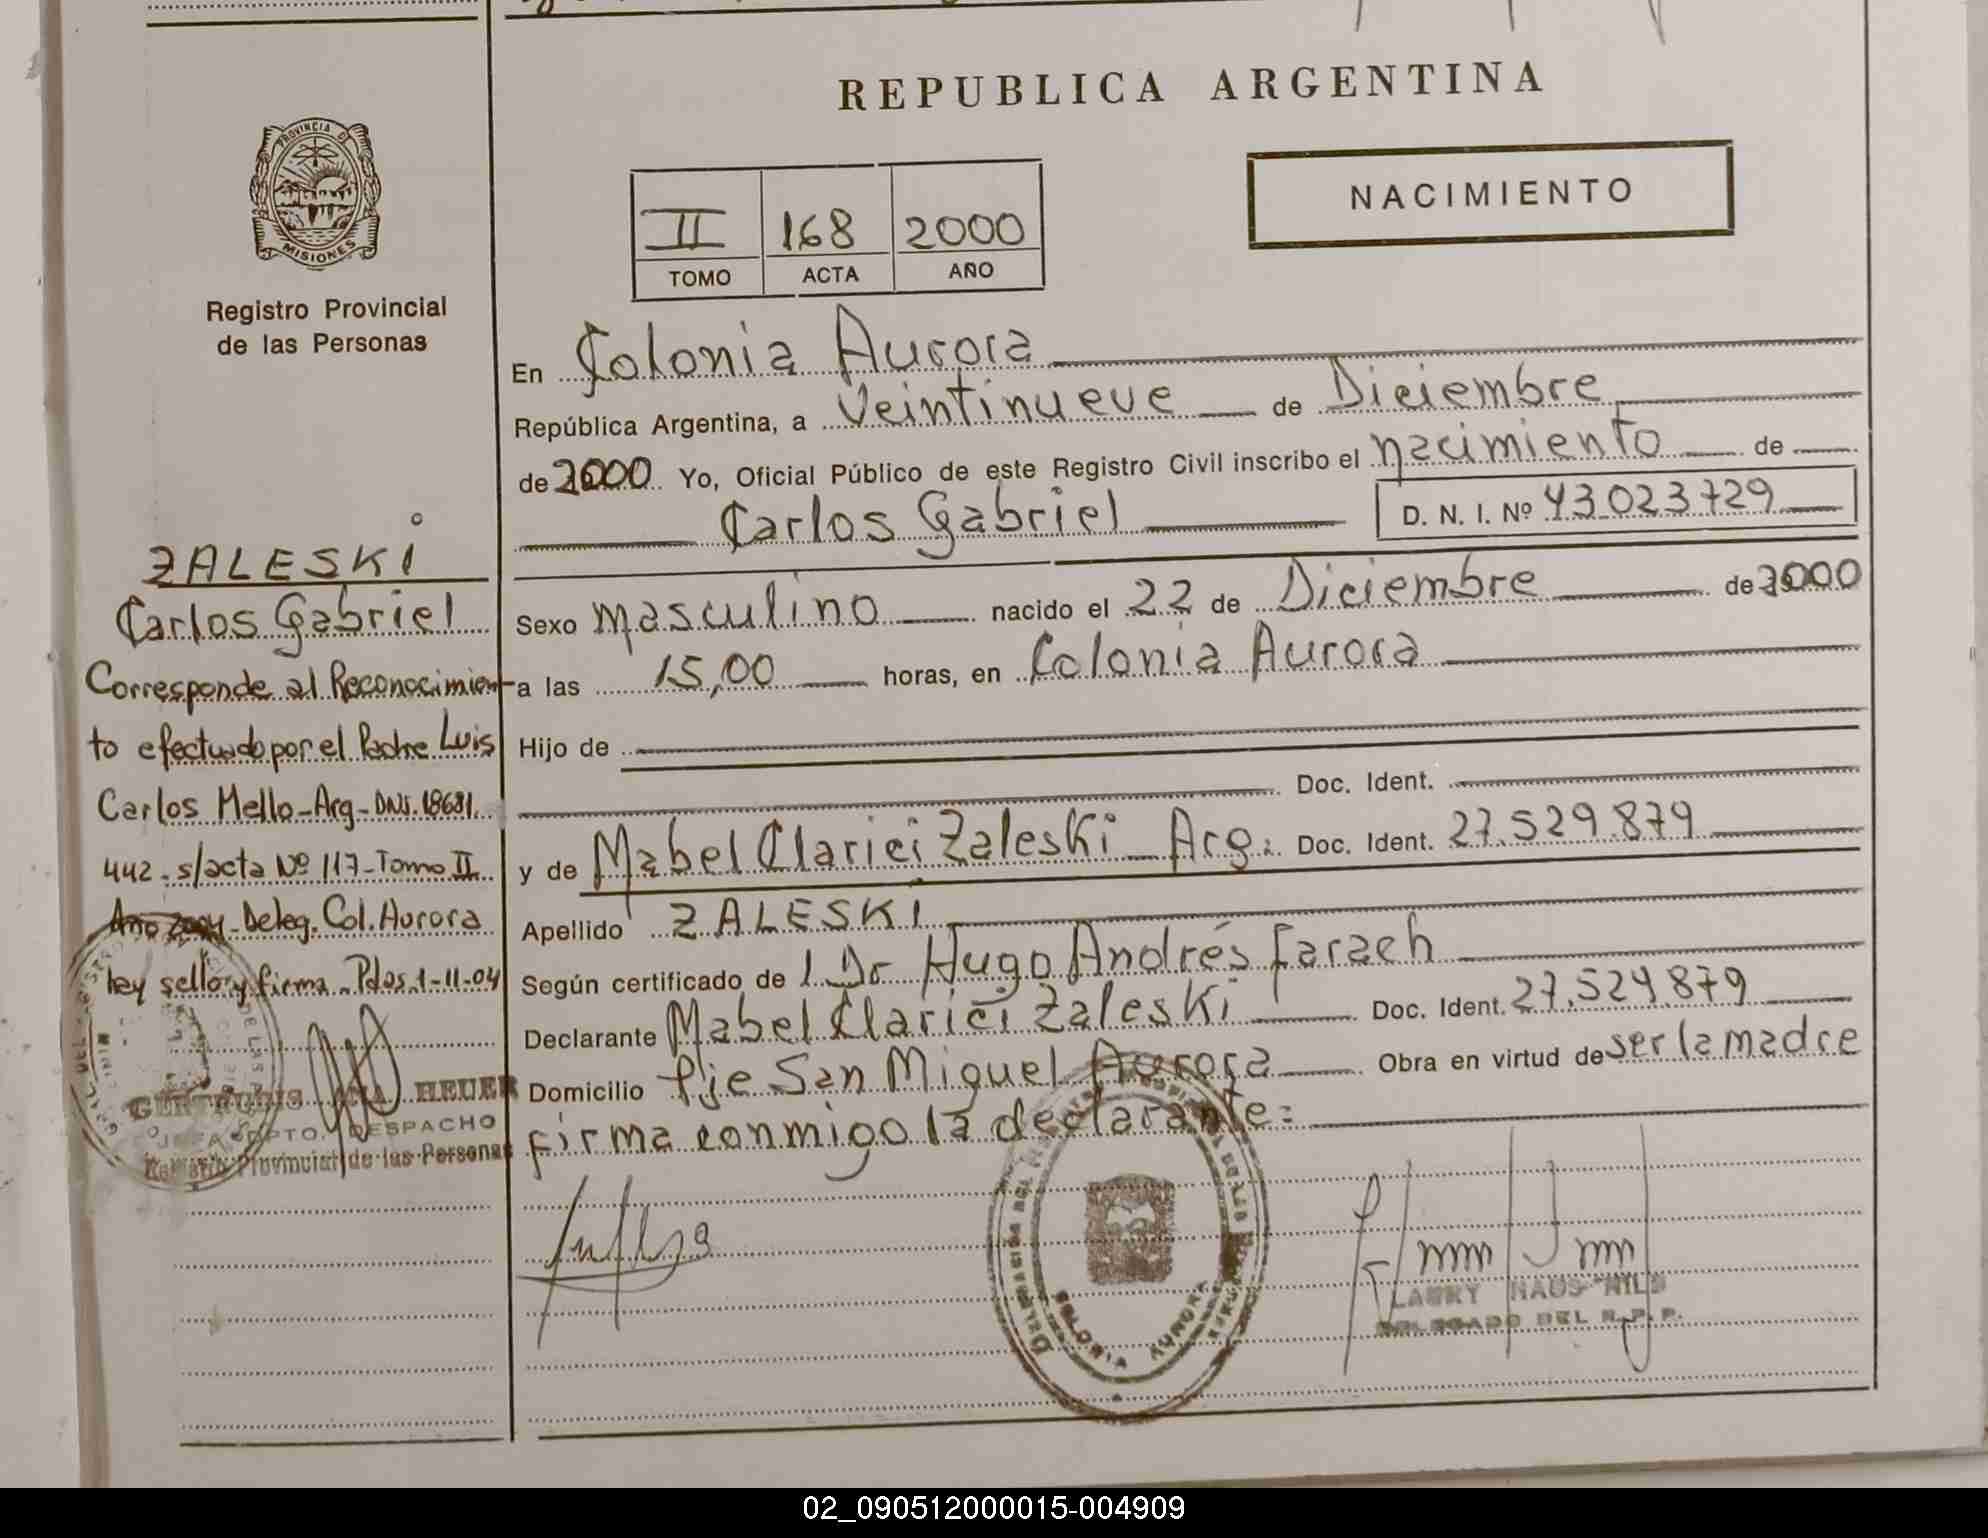 REPUBLICA ARGENTINA
PROVINCIA D
MISIONES
Registro Provincial
de las Personas
NACIMIENTO
II 168 2000
TOMO ACTA AÑO
En Colonia Aurora
República Argentina, a Veintinueve de Diciembre
de 2000 Yo, Oficial Público de este Registro Civil inscribo el nacimiento de
Carlos Gabriel D. N. I. Nº 43023729
Sexo masculino nacido el 22 de Diciembre de 2000
a las 15,00 horas, en Colonia Aurora
Hijo de
Doc. Ident.
y de Mabel Clarici Zaleski Arg. Doc. Ident. 27.529.879
Apellido ZALESKI
Según certificado de l Dr Hugo Andrés Farach
Declarante Mabel Clarici Zaleski Doc. Ident. 27.524.879
Domicilio Pje San Miguel Aurora Obra en virtud de ser la madre
firma conmigo la declarante:
ZALESKI
Carlos Gabriel
Corresponde al Reconocimien-
to efectuado por el Padre Luis
Carlos Mello-Arg-DNI.18681.
442. s/acta Nº 117-Tomo II
Año 2004-Deleg. Col. Aurora
hey sello y firma-Pdas. 1-11-04
GERTRUDIS HEUER
JEFA DPTO. DESPACHO
Registro Provincial de las Personas
DELEGACION DEL REGISTRO PROVINCIAL DE LAS PERSONAS
COLONIA AURORA
LAURY HAUS
DELEGADO DEL R.P.P.
02_090512000015-004909